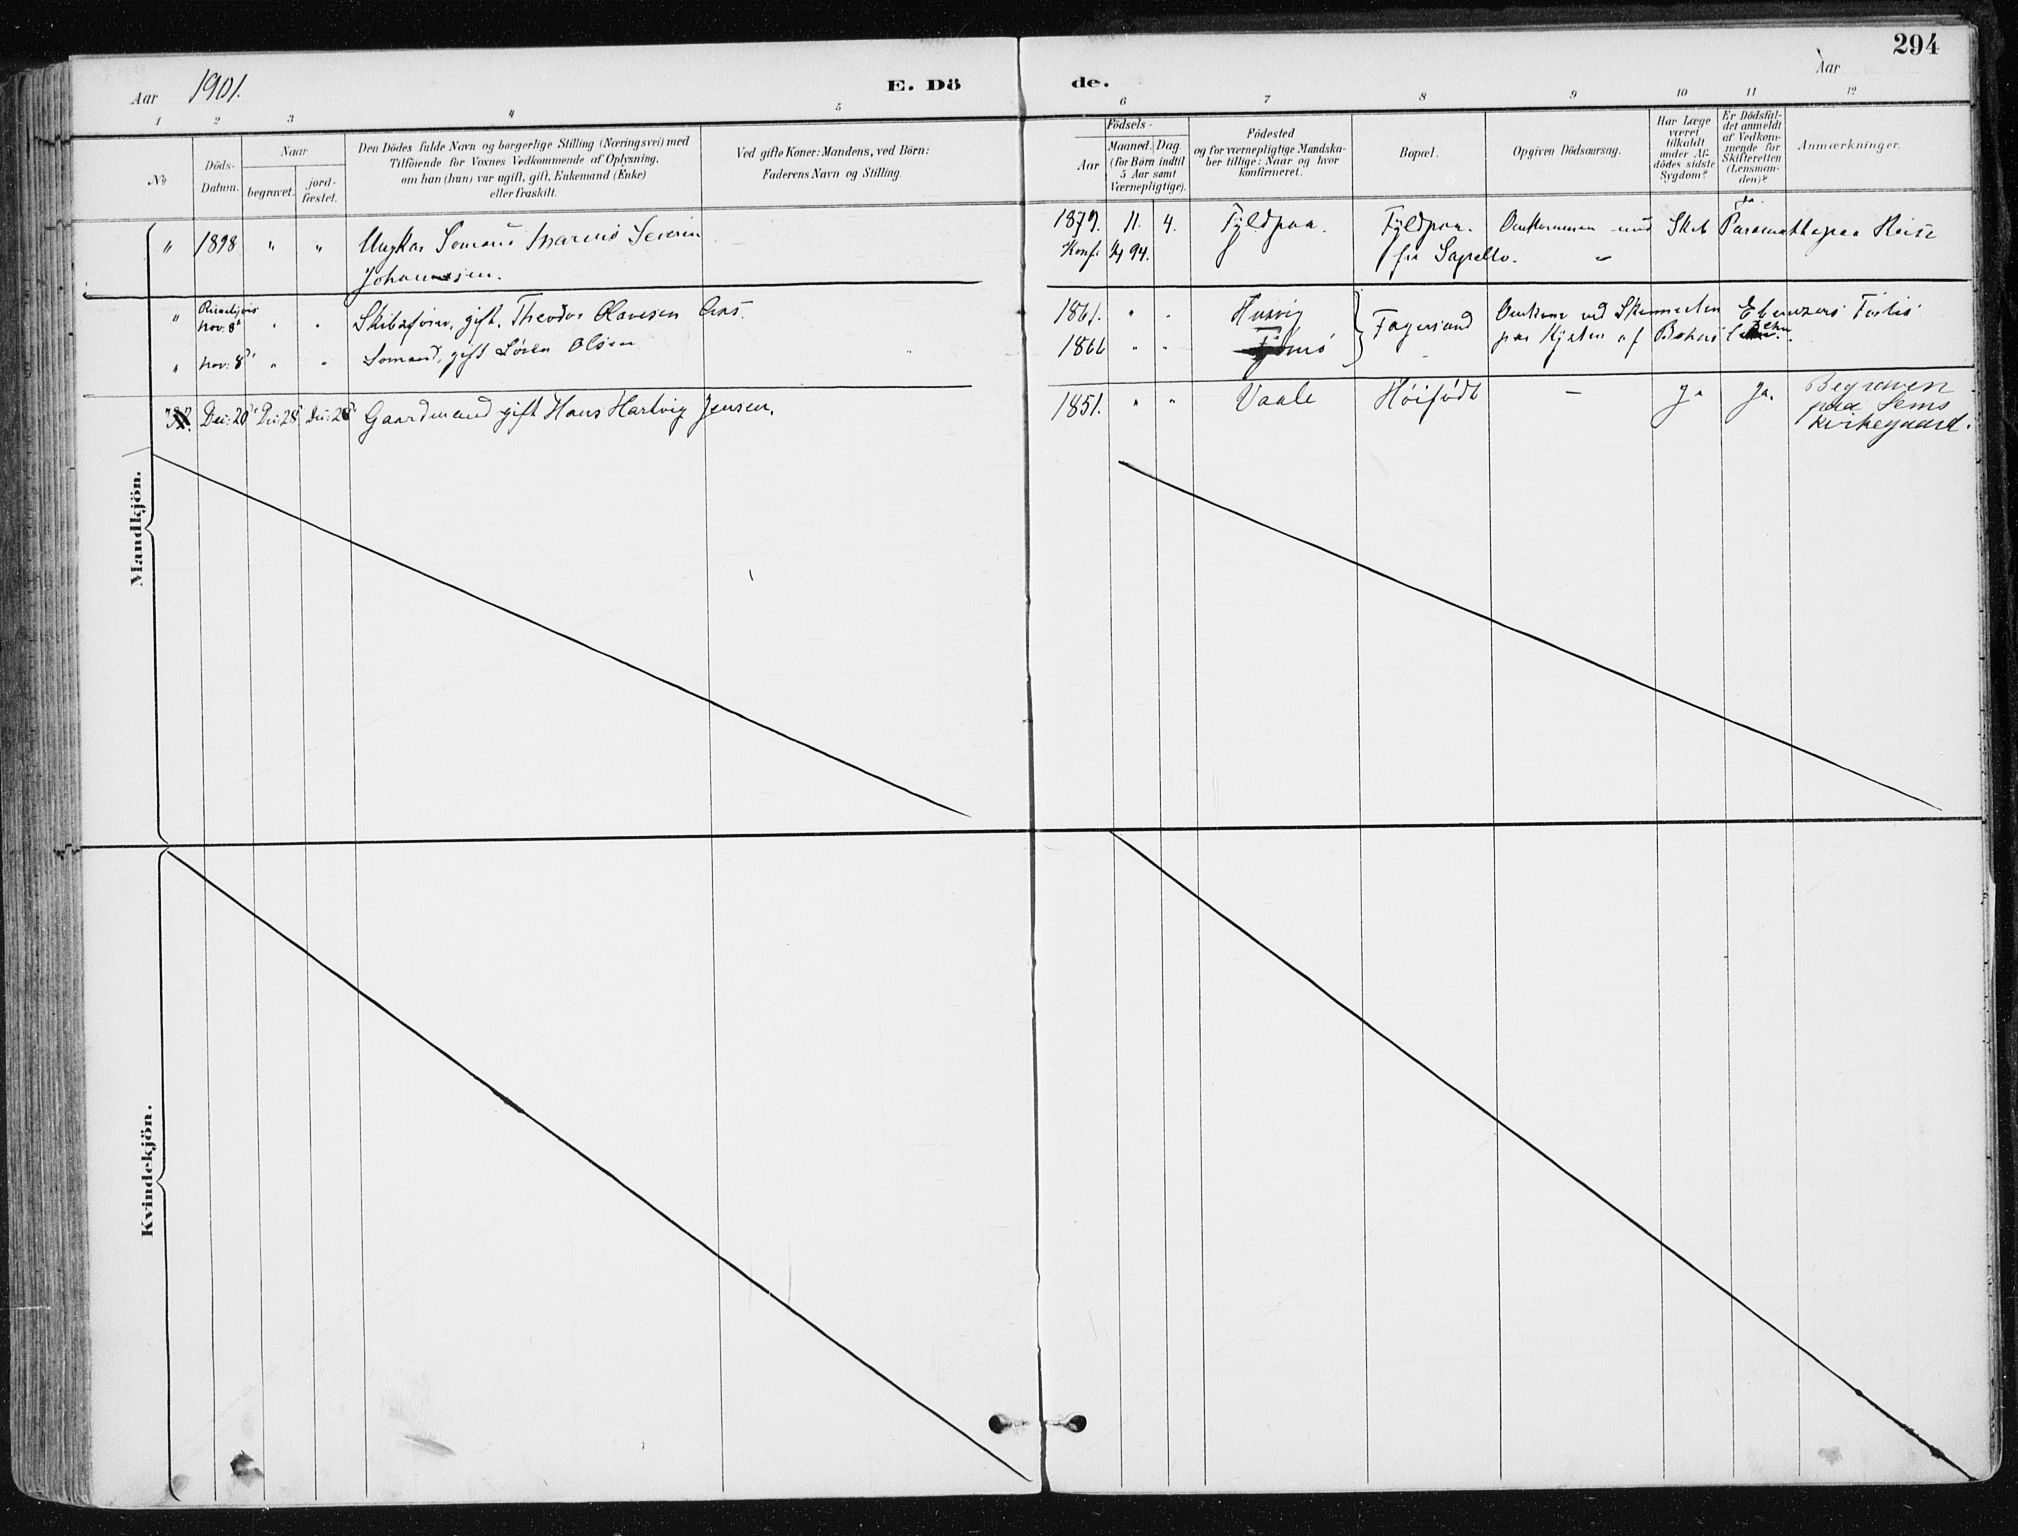 294
Aar 1901.
E. Dö
de.
Aar
1 2 3 4 5 6 7 8 9 10 11 12
No
Döds-
Datum.
Naar
begravet.
jord-
fæstet.
Den Dödes fulde Navn og borgerlige Stilling (Næringsvei) med
Tilföiende for Voxnes Vedkommende af Oplysning,
om han (hun) var ugift, gift, Enkemand (Enke)
eller fraskilt.
Ved gifte Koner: Mandens, ved Börn:
Faderens Navn og Stilling.
Födsels-
Aar
Maaned. Dag.
(for Börn indtil
5 Aar samt
Værnepligtige).
Födested
og for værnepligtige Mandska-
ber tillige: Naar og hvor
konfirmeret.
Bopæl.
Opgiven Dödsaarsag.
Har Læge
været
tilkaldt
under Af-
dödes sidste
Sygdom?
Er Dödsfal-
det anmeldt
af Vedkom-
mende for
Skifteretten
(Lensman-
den)?
Anmærkninger.
" 1898 " " Ungkar Sømand Marcus Severin
Johannesen.
1879. 11. 4. Fyldpaa. Fyldpaa. Omkommen med Skib Paramatta paa Reise
Konf. 4/94. fra Sapello.
" Nov. 8d " " Skibsfører, gift, Theodor Olavesen Aas.
1861. " " Husvig
Fagersand
Omkom ved Skonnerten Ebenezers Forlis
" Nov: 8d " " Sømand, gift Søren Olsen
1866 " "
paa Kysten af
Dec: 20d Dec: 28d Dec: 28d Gaardmand gift Hans Hartvig Jensen.
1851. " " Vaale Høifødt – Ja Ja.
Begraven
paa Sems
Kirkegaard.
Mandkjön.
Kvindekjön.